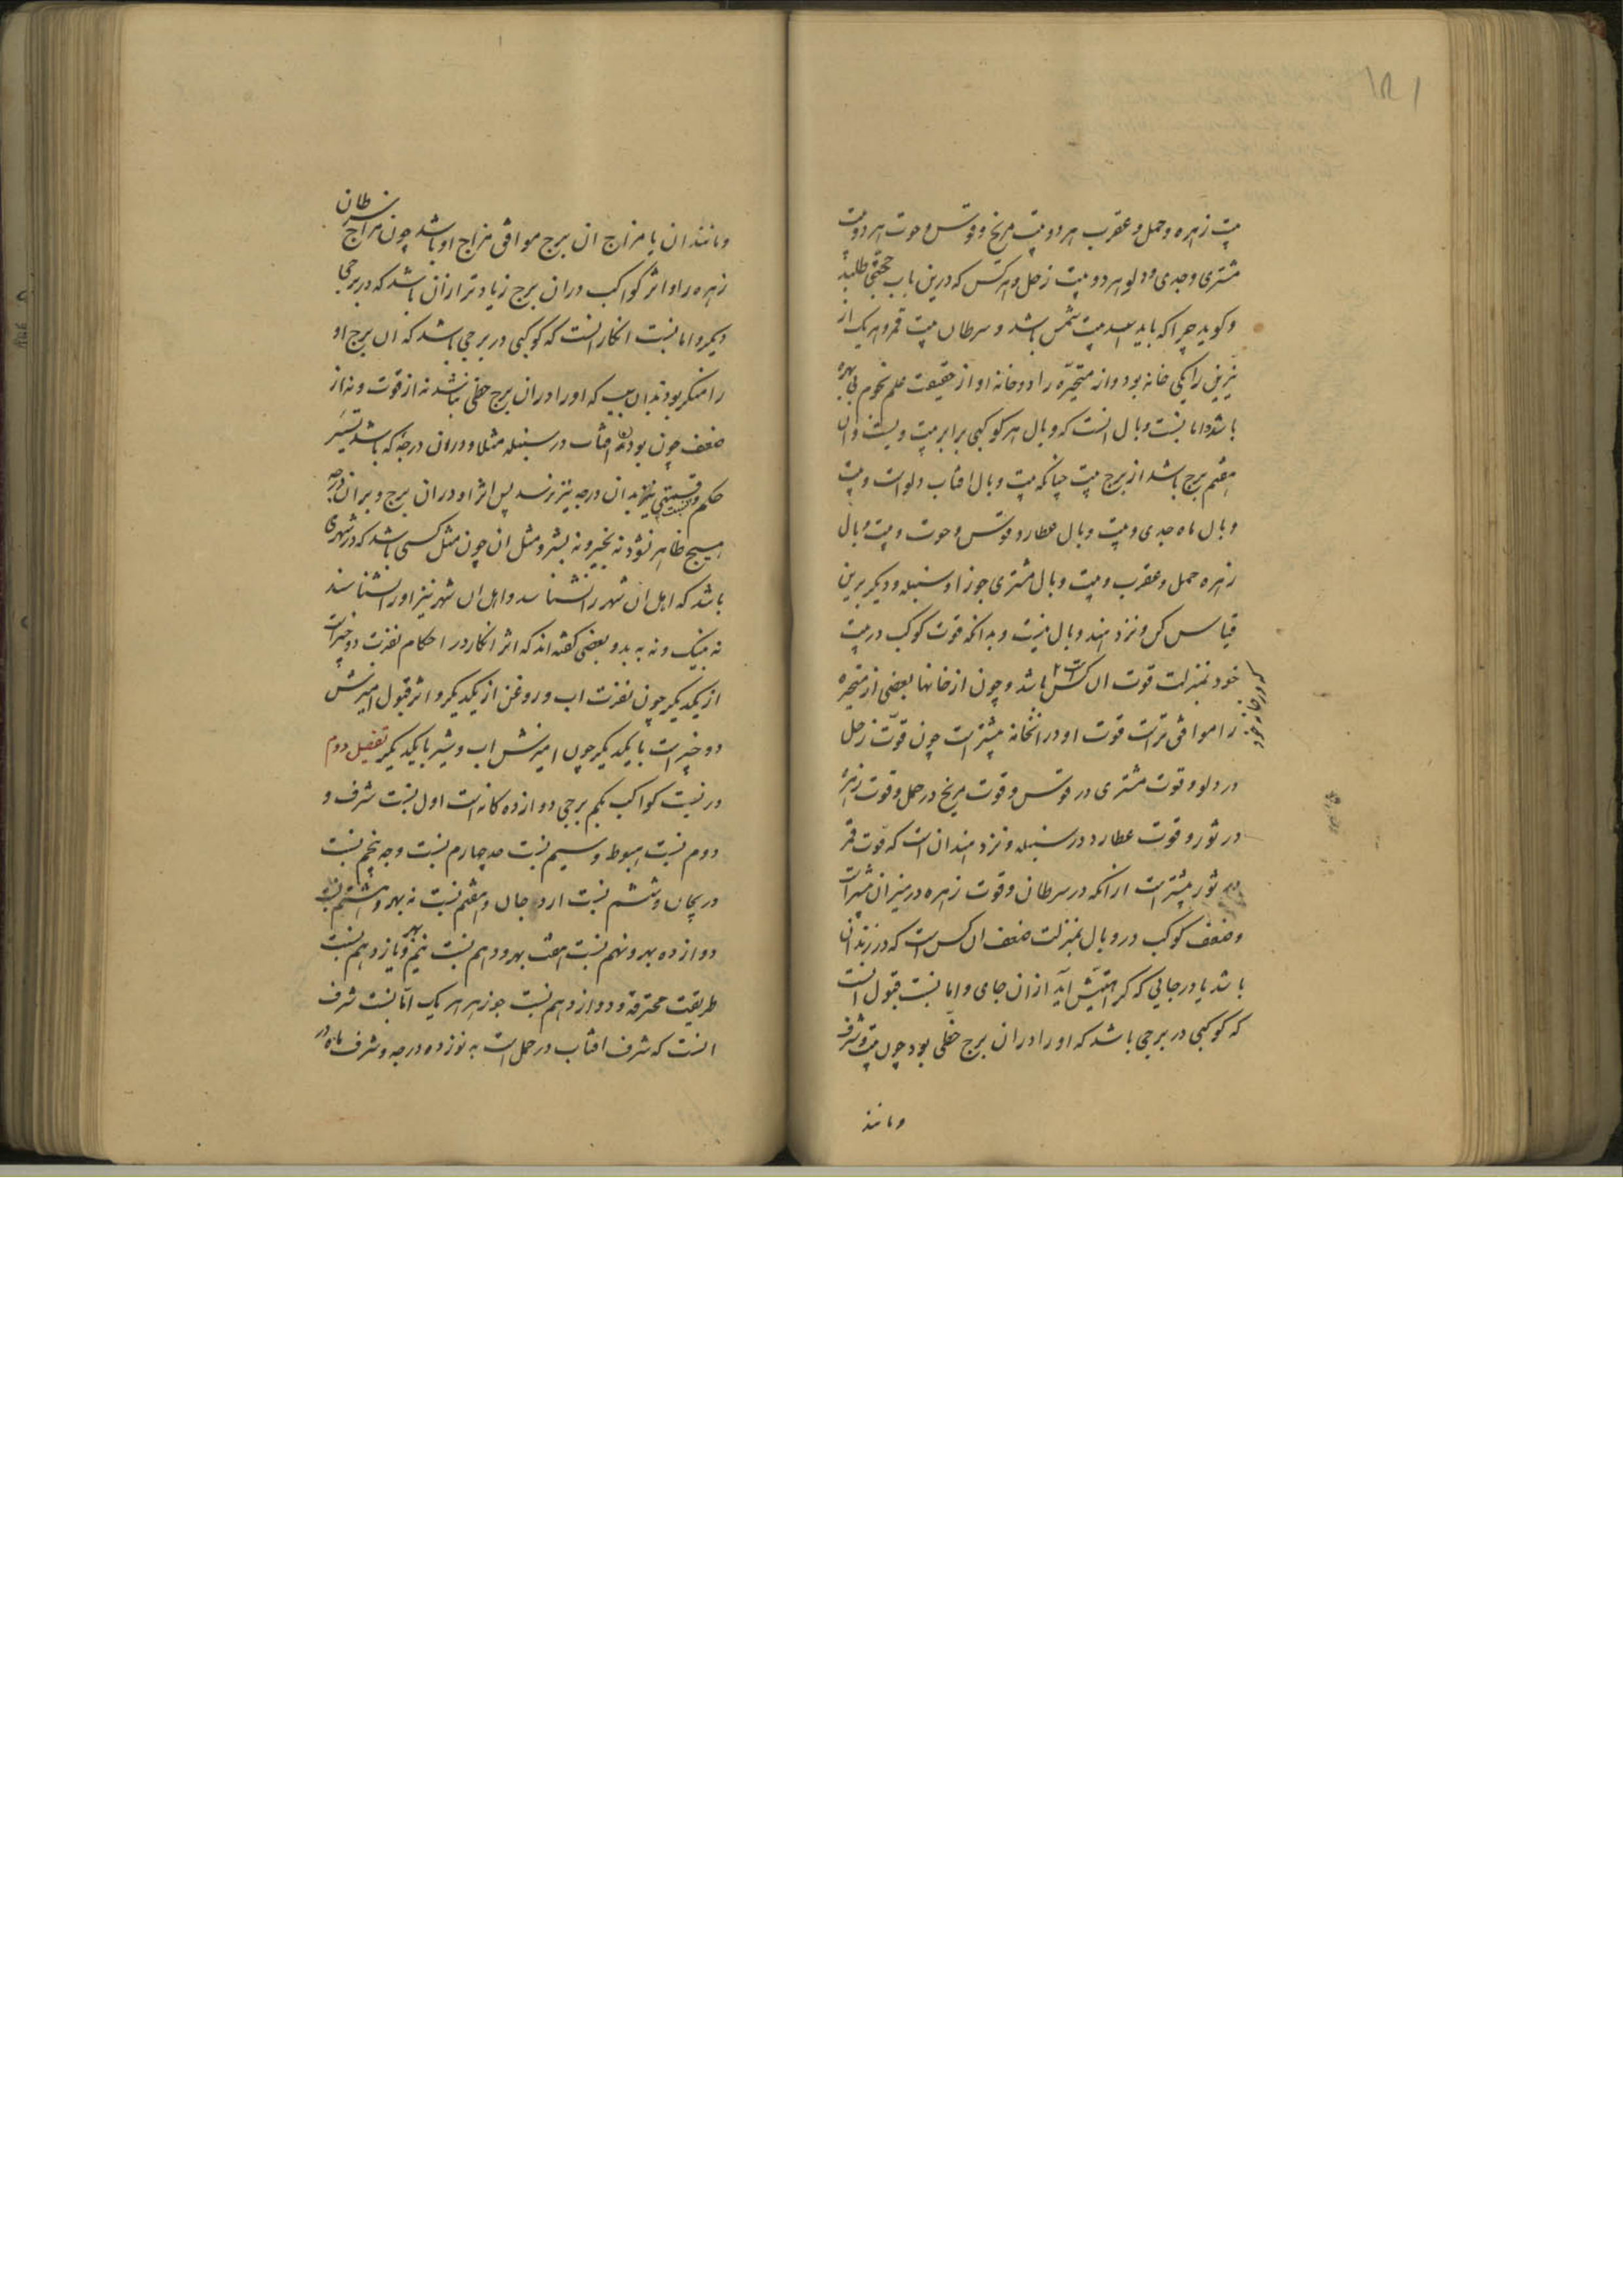 بیت زهره و حمل و عقرب هر دو بیت مریخ و قوس و حوت هر دو بیت
مشتری و جدی و دلو هر دو بیت زحل و هر کس که درین باب حجتی طلبد
و کوید چرا که باید اسد بیت شمس باشد و سرطان بیت قمر و هر یک از
نیرین را یکی خانه بود و از متحیّره را دو خانه او از حقیقت علم نجوم بی بهره
باشد و اما نسبت وبال انست که وبال هر کوکبی برابر بیت ویست و آن
هفتم برج باشد از برج بیت چنانکه بیت وبال افتاب دلو است و بیت
وبال ماه جدی و بیت وبال عطارد قوس و حوت و بیت وبال
زهره حمل و عقرب و بیت وبال مشتری جوزا و سنبله و دیکر برین
قیاس کن و نزد هند وبال نیست و بدانکه قوت کوکب در بیت
خود بمنزلت قوت ان کس باشد و چون از خانها بعضی از متحیره
که در خانه خود
را موافق تر است قوت او در انخانه بیشتر است چون قوّت زحل
در دلو و قوت مشتری در قوس و قوت مریخ در حمل و قوت زهره
در ثور و قوت عطارد در سنبله و نزد هندان است که قوت قمر
در ثور بیشتر است از انکه در سرطان و قوت زهره در میزان بیشتر است
و ضعف کوکب در وبال بمنزلت ضعف ان کس است که در زندان
باشد یا در جایی که کراهتیش آید از ان جای و اما نسبت قبول انست
که کوکبی در برجی باشد که او را در ان برج حظّی بود چون بیت و شرف
و مانند
و مانند ان یا مزاج ان برج موافق مزاج او باشد چون مزاج سرطان
زهره را و اثر کواکب در ان برج زیاد تر از ان باشد که در برجی
دیکر و اما نسبت انکار انست که کوکبی در برجی باشد که ان برج او
را منکر بود بدان سبب که او را در ان برج حظّی نباشد نه از قوت و نه از
ضعف چون بودن افتاب در سنبله مثلا و در ان درجه که باشد تسییر
حکم و قسمتی نیز بدان درجه نیز نرسد پس اثر او در ان برج و بر ان درجه
هیچ ظاهر نشود نه بخیر و نه بشر و مثل ان چون مثل کسی باشد که در شهری
باشد که اهل ان شهر را نشناسد و اهل ان شهر نیز او را نشناسند
نه بنیک و نه به بد و بعضی کفته اند که اثر انکار در احکام نفرت دو چیز است
از یکدیکر چون نفرت اب و روغن از یکدیکر و اثر قبول امیزش
دو چیز است با یکدیکر چون امیزش اب و شیر با یکدیکر تفصیل دوم
در نسبت کواکب بحکم برجی دوازده کانه است اول نسبت شرف و
دوم نسبت هبوط و سیم نسبت حد چهارم نسبت وجه پنجم نسبت
دریجان و ششم نسبت اردجان و هفتم نسبت نه بهر و هشتم نسبت
دوازده بهر و نهم نسبت هفت بهر و دهم نسبت نیم بهر و یازدهم نسبت
طریقت محترقه و دوازدهم نسبت جوزهر هر یک امّا نسبت شرف
انست که شرف افتاب در حمل است به نوزده درجه و شرف ماه در